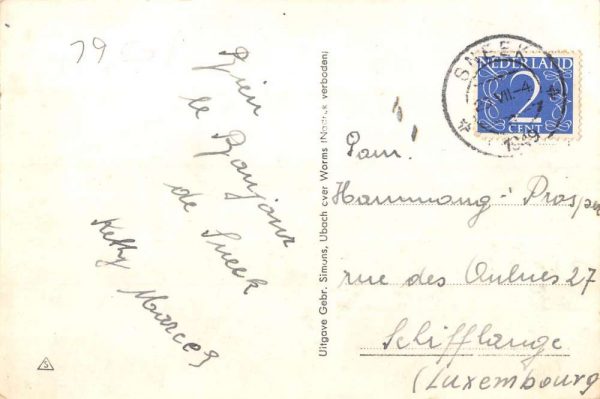 79
Bien
le Bonjour
de Sneek
Ketty Marcel
Uitgave Gebr. Simons, Ubach over Worms (Nadruk verboden)
SNEEK
VII-4
1949
NEDERLAND
2
CENT
Fam.
Hammang-Prosper
rue des Onlues 27
Schifflange
(Luxembourg
S